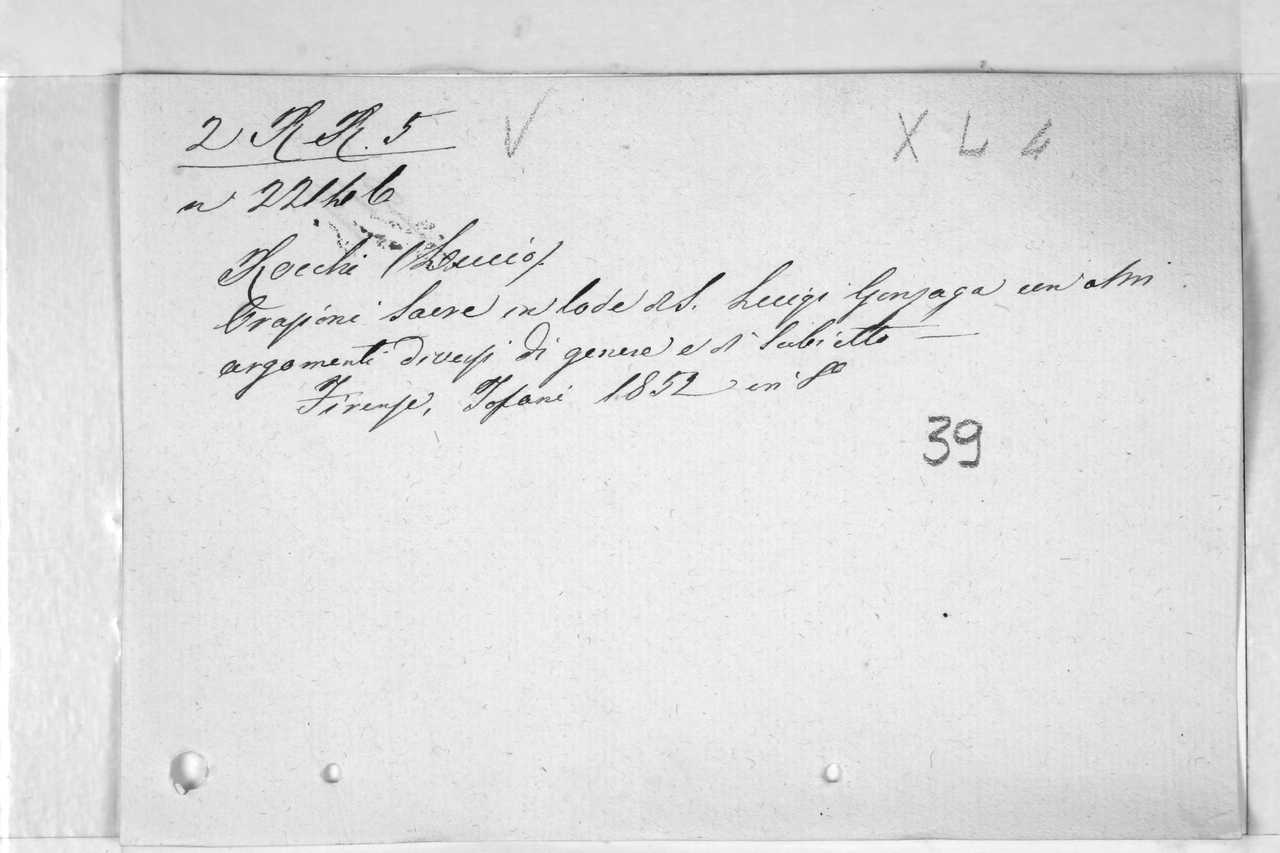 2 R R. 5 V X L L
n 22146
Rocchi (Duccio)
Orazioni Sacre in lode di S. Luigi Gonzaga con altri
argomenti diversi di genere e di Subietto —
Firenze, Tofani 1852 in 8°
39